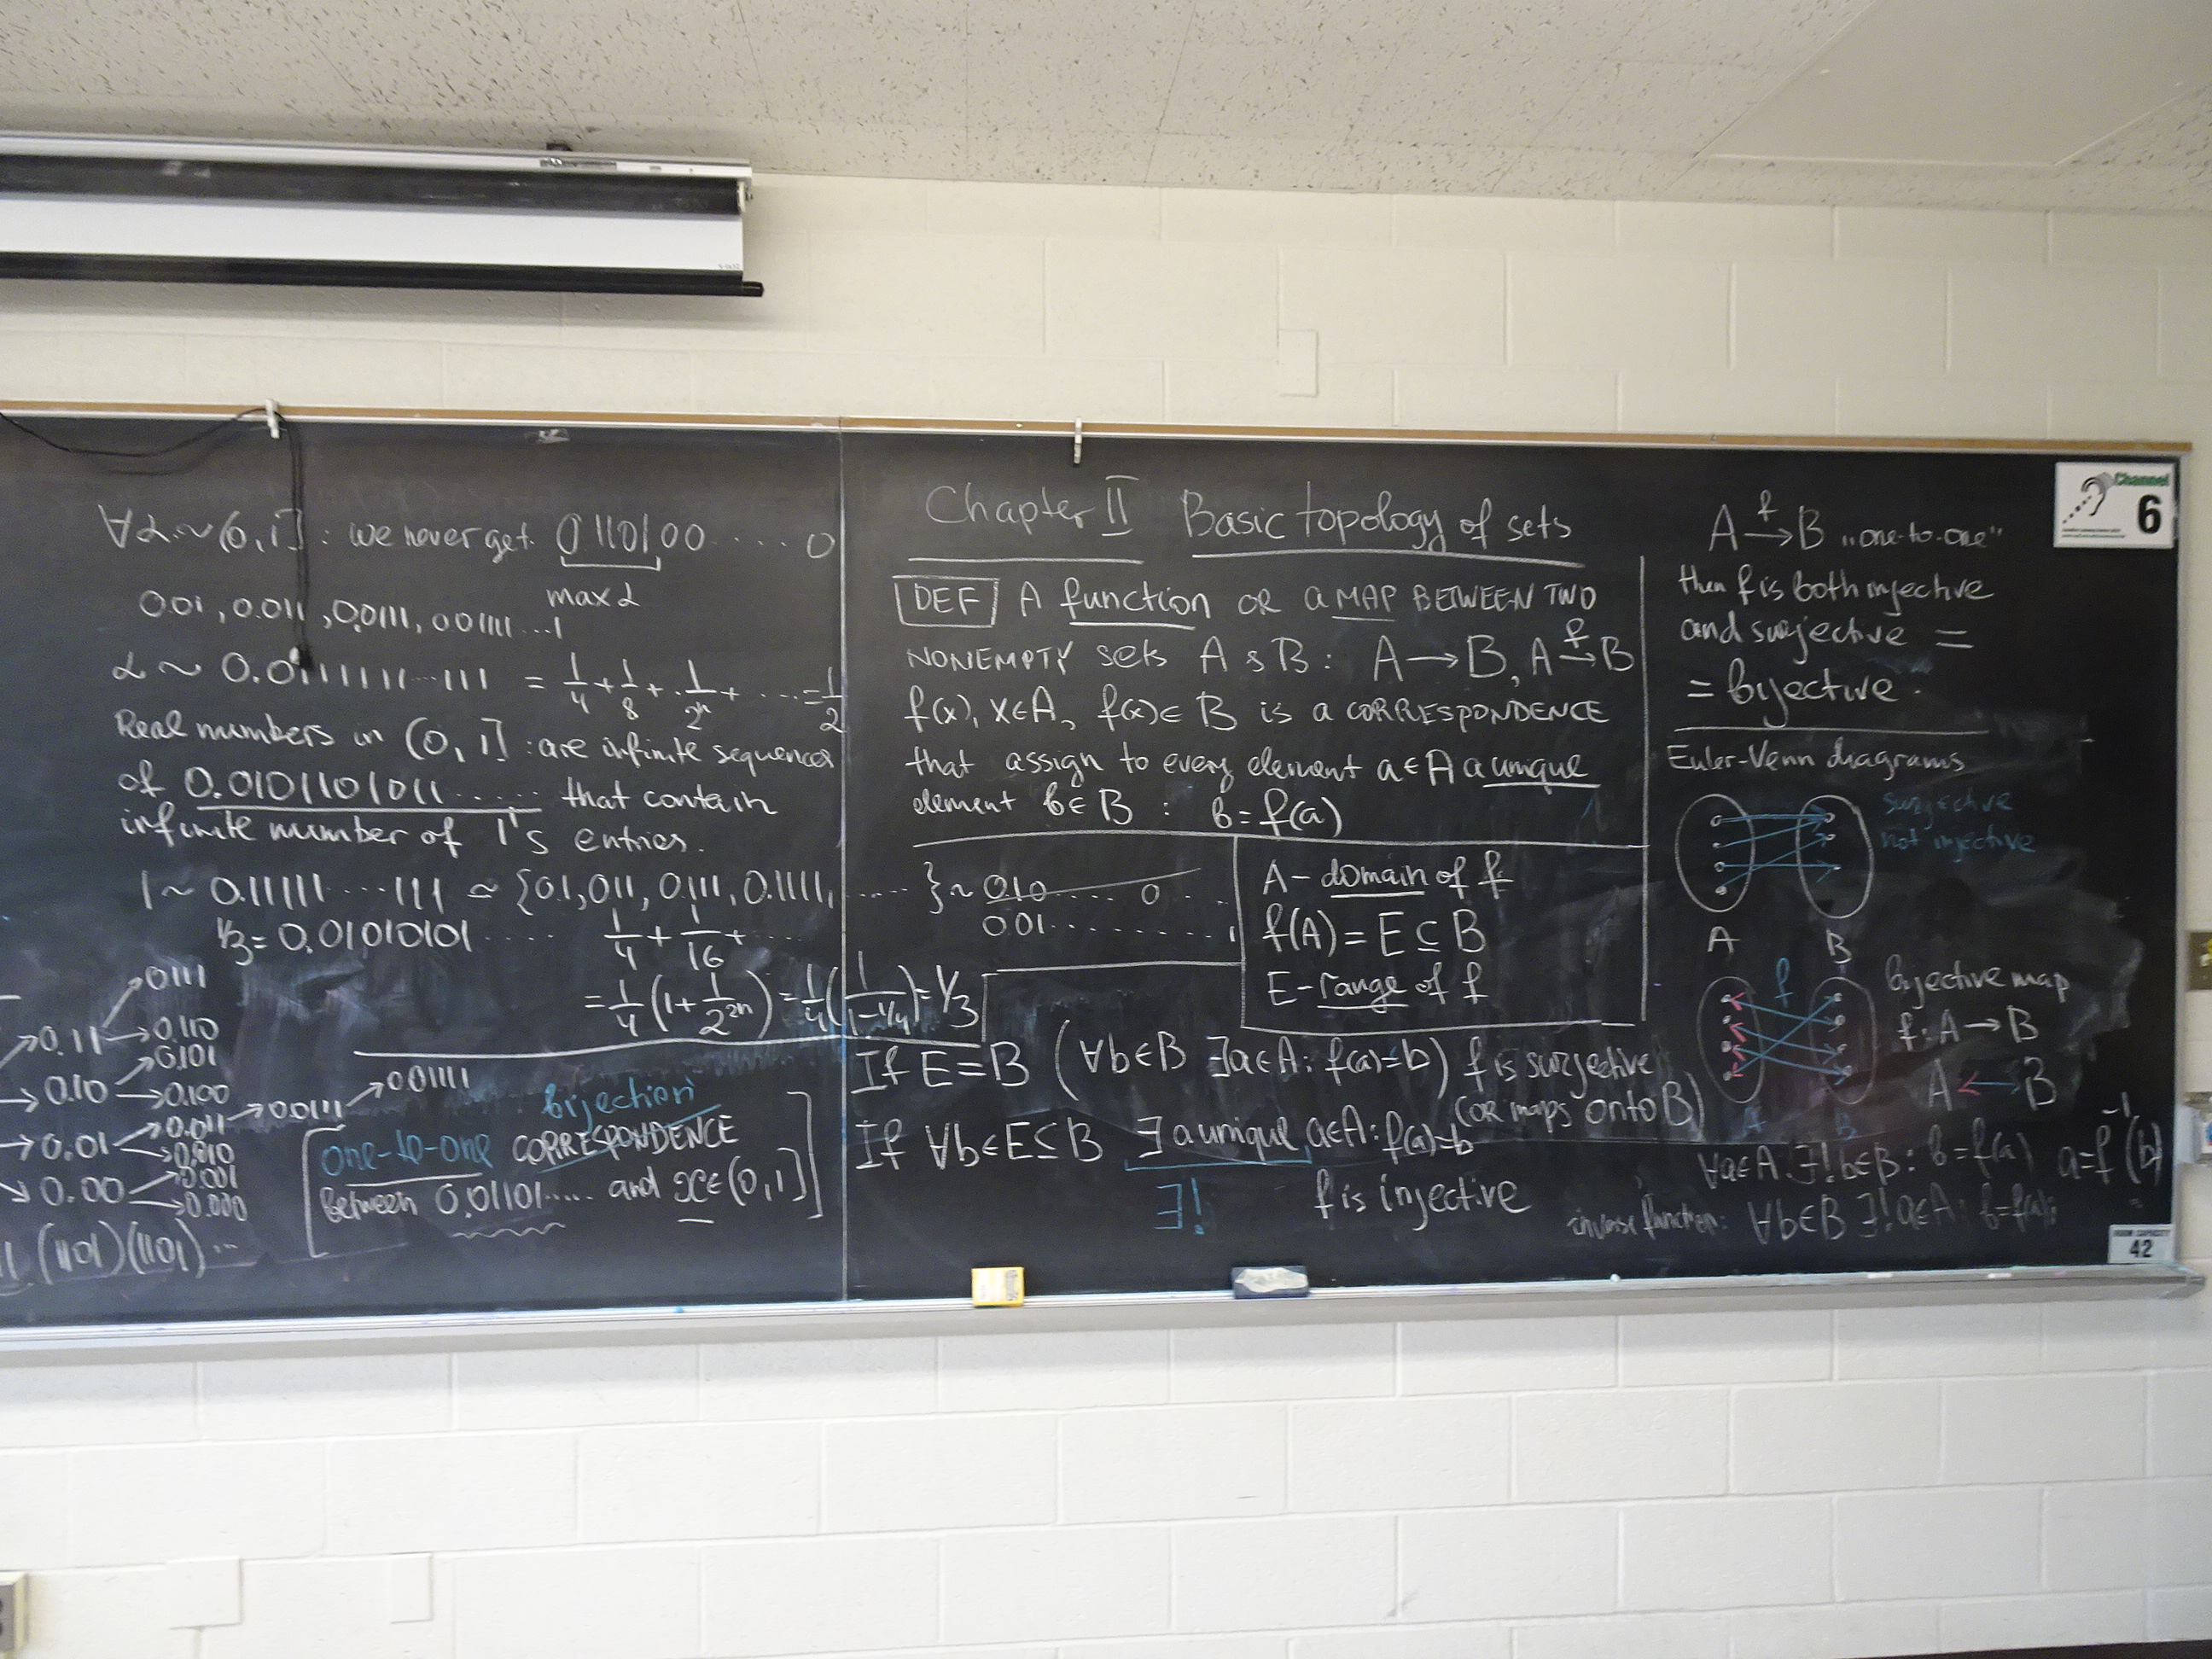 ∀α ~ (0,1] : we never get 0.1101,00 .... 0
max α
0.01, 0.011, 0.0111, 0.01111 ... 1
α ~ 0.01111111...111 = 1/4 + 1/8 + . 1/2ⁿ + .... = 1/2
Real numbers in (0,1] : are infinite sequences
of 0.0101101011...... that contain
infinite number of 1's entries.
1 ~ 0.11111....111 ≃ {0.1, 011, 0.111, 0.1111, ..... } ~ 0.10 ..... 0 ...
0.01......... 1
1/3 = 0.01010101..... 1/4 + 1/16 + .....
= 1/4 (1 + 1/2²ⁿ) = 1/4 (1/(1-1/4)) = 1/3
→0.11 →0.111
→0.110
→0.10 →0.101
→0.100
→0.01 →0.011 →0.0111 →0.01111
→0.010
→0.00 →0.001
→0.000
(1101)(1101)...
bijection
one-to-one CORRESPONDENCE
between 0.01101..... and x∈(0,1]
Chapter II Basic topology of sets
DEF A function OR a MAP BETWEEN TWO
NONEMPTY sets A & B : A → B, A →f B
f(x), x∈A, f(x)∈B is a CORRESPONDENCE
that assign to every element a∈A a unique
element b∈B : b = f(a)
A - domain of f
f(A) = E ⊆ B
E - range of f
If E = B (∀b∈B ∃a∈A: f(a)=b) f is surjective
(or maps onto B)
If ∀b∈E⊆B ∃ a unique a∈A: f(a)=b
∃! f is injective
A →f B „one-to-one"
then f is both injective
and surjective =
= bijective.
Euler-Venn diagrams
surjective
not injective
A B
f
bijective map
f: A → B
A ↔ B
A B
∀a∈A ∃! b∈B : b = f(a) a = f⁻¹(b)
inverse function: ∀b∈B ∃! a∈A : b = f(a);
Channel
6
ROOM CAPACITY
42